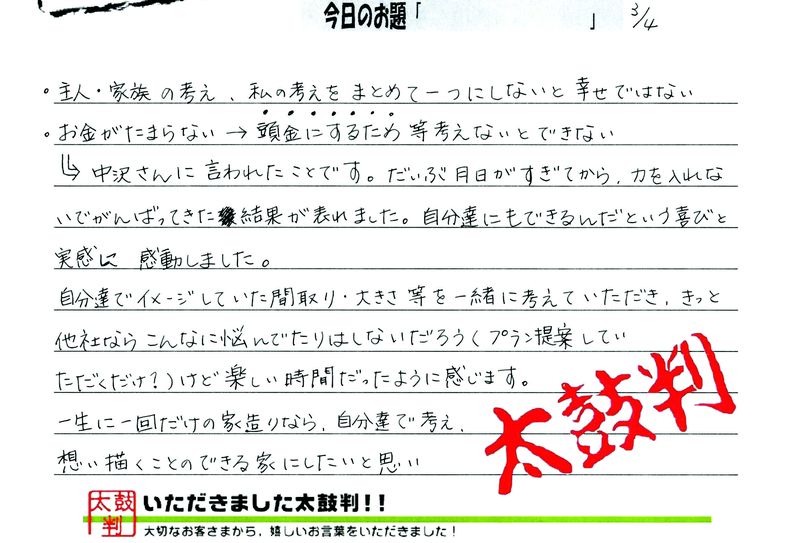 今日のお題「　　　　　　」 3/4
・主人・家族の考え、私の考えをまとめて一つにしないと幸せではない
・お金がたまらない → 頭金にするため等考えないとできない
↳ 中沢さんに言われたことです。だいぶ月日がすぎてから、力を入れな
いでがんばってきた結果が表れました。自分達にもできるんだという喜びと
実感に 感動しました。
自分達でイメージしていた間取り・大きさ等を一緒に考えていただき、きっと
他社ならこんなに悩んでたりはしないだろう(プラン提案してい
ただくだけ?)けど楽しい時間だったように感じます。
一生に一回だけの家造りなら、自分達で考え、
想い描くことのできる家にしたいと思い
太鼓判
太鼓判
いただきました太鼓判!!
大切なお客さまから、嬉しいお言葉をいただきました!